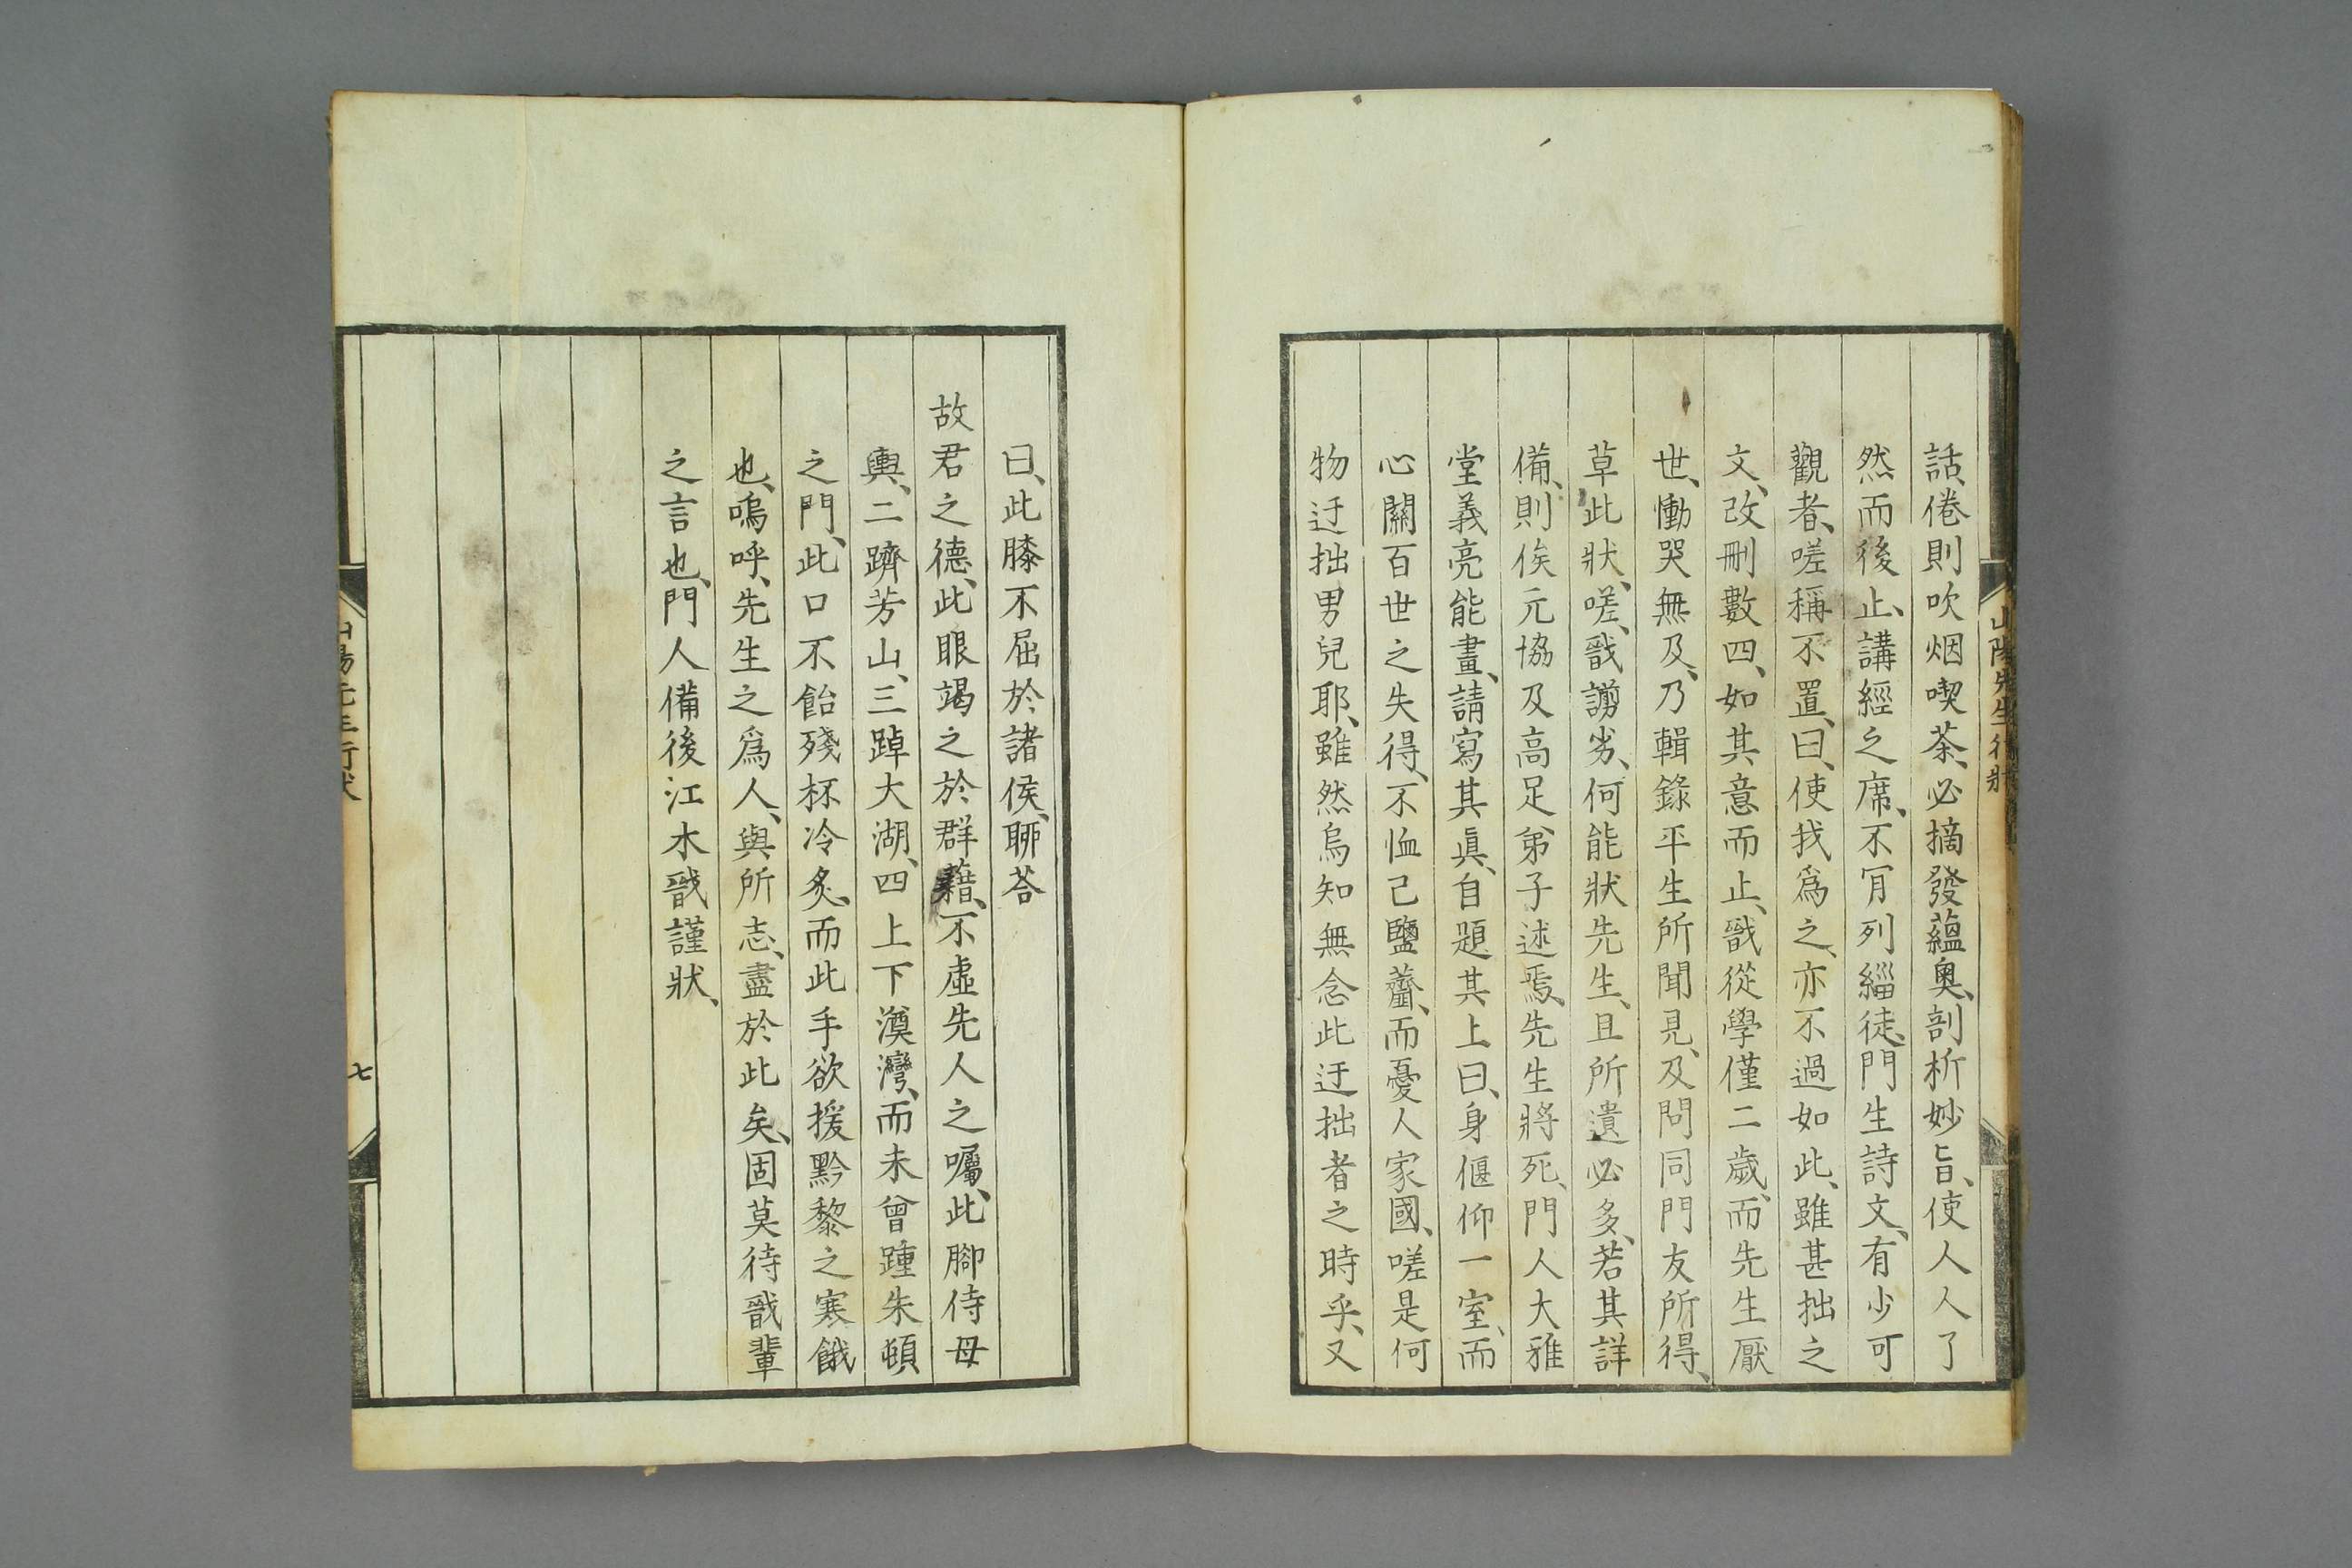 話、倦則吹烟喫茶、必摘發蘊奧、剖析妙旨、使人人了
然而後止、講經之席、不肎列緇徒、門生詩文、有少可
觀者、嗟稱不置、曰、使我爲之、亦不過如此、雖甚拙之
文、改刪數四、如其意而止、戩從學僅二歲、而先生厭
世、慟哭無及、乃輯錄平生所聞見、及問同門友所得、
草此狀、嗟、戩謭劣、何能狀先生、且所遺必多、若其詳
備、則俟元協及高足弟子述焉、先生將死、門人大雅
堂義亮能畫、請寫其眞、自題其上曰、身偃仰一室、而
心關百世之失得、不恤己鹽虀、而憂人家國、嗟是何
物迂拙男兒耶、雖然烏知無念此迂拙者之時乎、又
山陽先生行狀
曰、此膝不屈於諸侯、聊荅
故君之德、此眼竭之於群籍、不虛先人之囑、此腳侍母
輿、二躋芳山、三踔大湖、四上下澱灣、而未曾踵朱頓
之門、此口不飴殘杯冷炙、而此手欲援黔黎之寒餓
也、嗚呼、先生之爲人、與所志、盡於此矣、固莫待戩輩
之言也、門人備後江木戩謹狀、
七